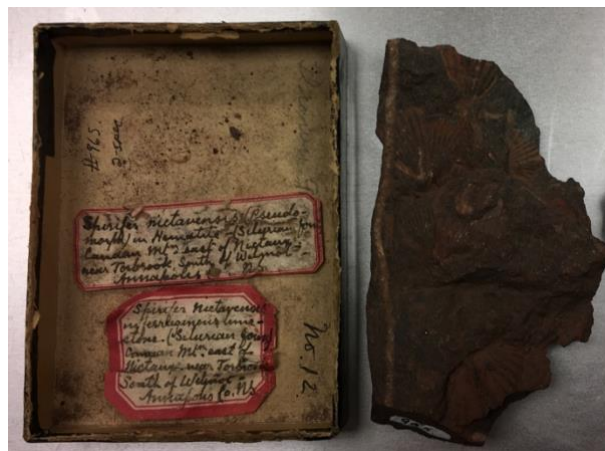 #965
Spirifer nictavensis (Pseudo-
morph) in Hematite - (Silurian form
Canaan Mtn east of Nictaux
near Torbrook South of Wilmot
Annapolis Co. NS
Spirifer Nictavensis
in ferruginous lime-
stone. (Silurian form)
Canaan Mtn east of
Nictaux, near Torbrook
South of Wilmot
Annapolis Co. NS
No. 12.